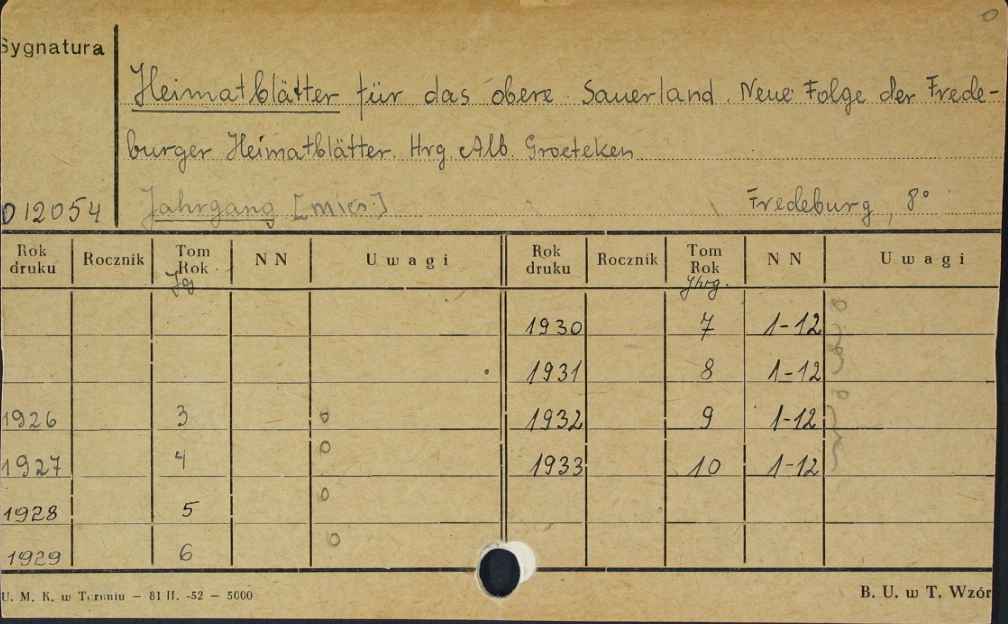 Sygnatura
Heimatblätter für das obere Sauerland. Neue Folge der Frede-
burger Heimatblätter. Hrg. Alb. Groeteken
012054 Jahrgang [mies.] Fredeburg, 8°
Rok druku Rocznik Tom Rok Jg. NN Uwagi Rok druku Rocznik Tom Rok Jhrg. NN Uwagi
1930 7 1-12
1931 8 1-12
1926 3 0 1932 9 1-12
1927 4 0 1933 10 1-12
1928 5 0
1929 6 0
U. M. K. w Toruniu — 81 II. -52 — 5000 B. U. w T. Wzór